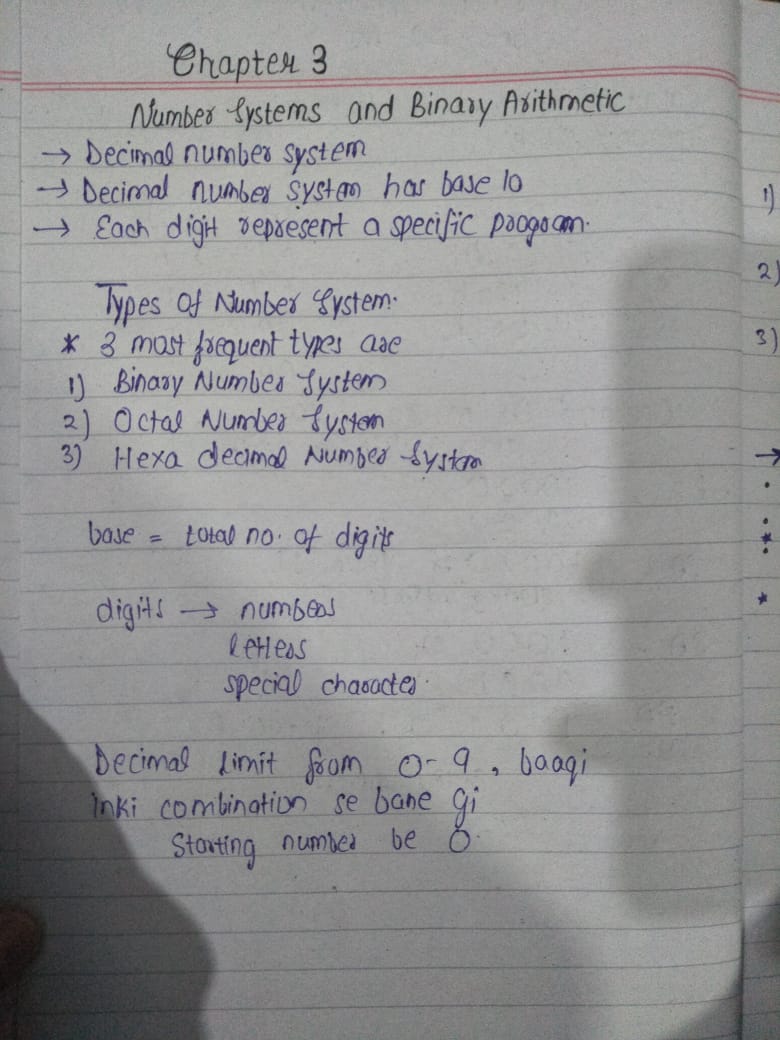 Chapter 3
Number Systems and Binary Arithmetic
→ Decimal number system
→ Decimal number system has base 10
→ Each digit represent a specific program.
Types of Number System.
* 3 most frequent types are
1) Binary Number System
2) Octal Number System
3) Hexa decimal Number System
base = total no. of digits
digits → numbers
letters
special character.
Decimal limit from 0-9, baaqi
inki combination se bane gi
Starting number be 0.
1)
2)
3)
→